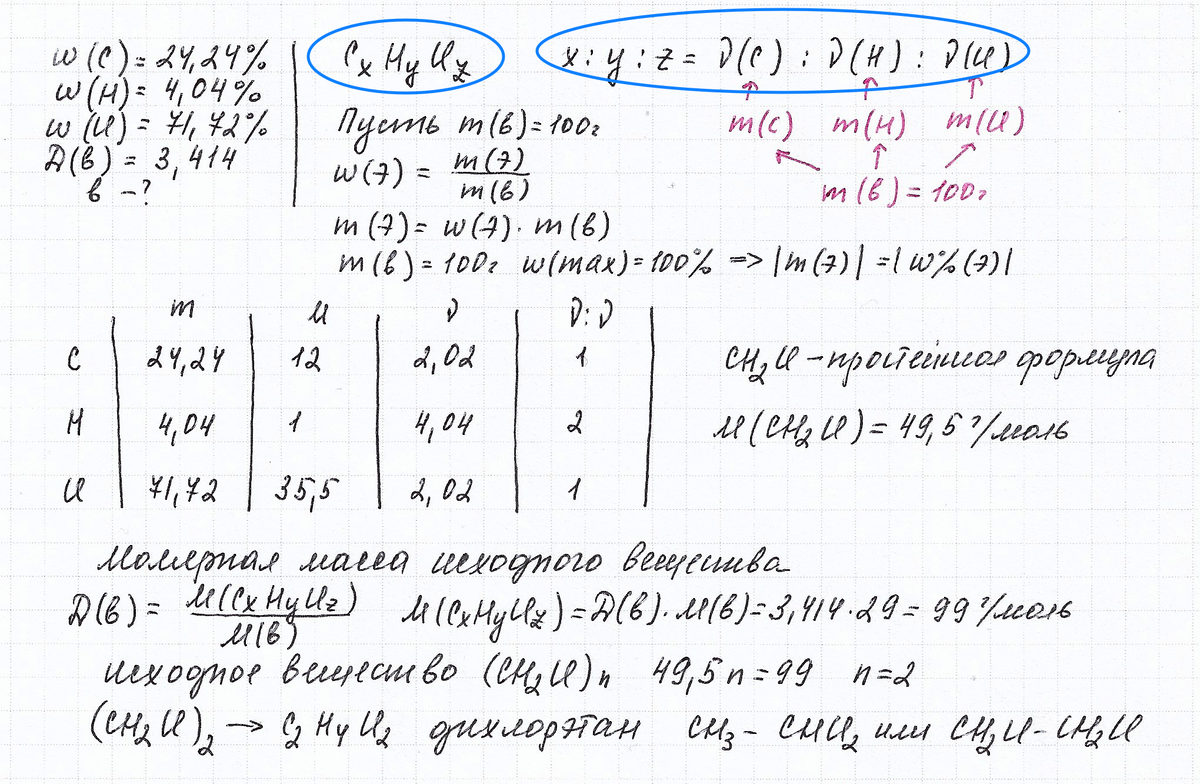 w(C) = 24,24%
w(H) = 4,04%
w(Cl) = 71,72%
D(в) = 3,414
в - ?
CxHyClz
x : y : z = ν(C) : ν(H) : ν(Cl)
m(C) m(H) m(Cl)
m(в) = 100г
Пусть m(в) = 100г
w(э) = m(э)/m(в)
m(э) = w(э) · m(в)
m(в) = 100г w(max) = 100% => |m(э)| = |w%(э)|
m M ν ν:ν
C 24,24 12 2,02 1
H 4,04 1 4,04 2
Cl 71,72 35,5 2,02 1
CH₂Cl - простейшая формула
M(CH₂Cl) = 49,5 г/моль
Молярная масса исходного вещества
D(в) = M(CxHyClz)/M(в) M(CxHyClz) = D(в) · M(в) = 3,414 · 29 = 99 г/моль
исходное вещество (CH₂Cl)n 49,5n = 99 n = 2
(CH₂Cl)₂ → C₂H₄Cl₂ дихлорэтан CH₃ - CHCl₂ или CH₂Cl - CH₂Cl